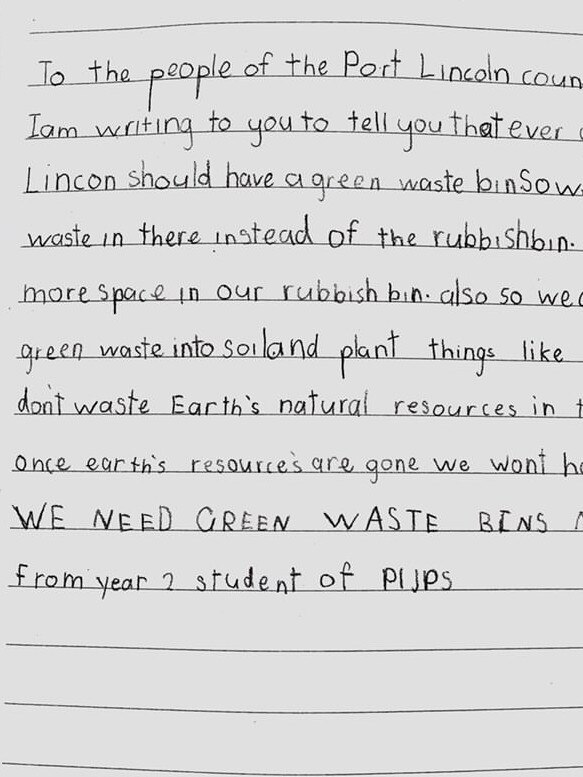 To the people of the Port Lincoln coun
I am writing to you to tell you that ever
Lincon should have a green waste bin So w
waste in there instead of the rubbish bin.
more space in our rubbish bin. also so we
green waste into soil and plant things like
don't waste Earth's natural resources in t
once earth's resource's are gone we wont ha
WE NEED GREEN WASTE BINS
from year 2 student of PlJPS